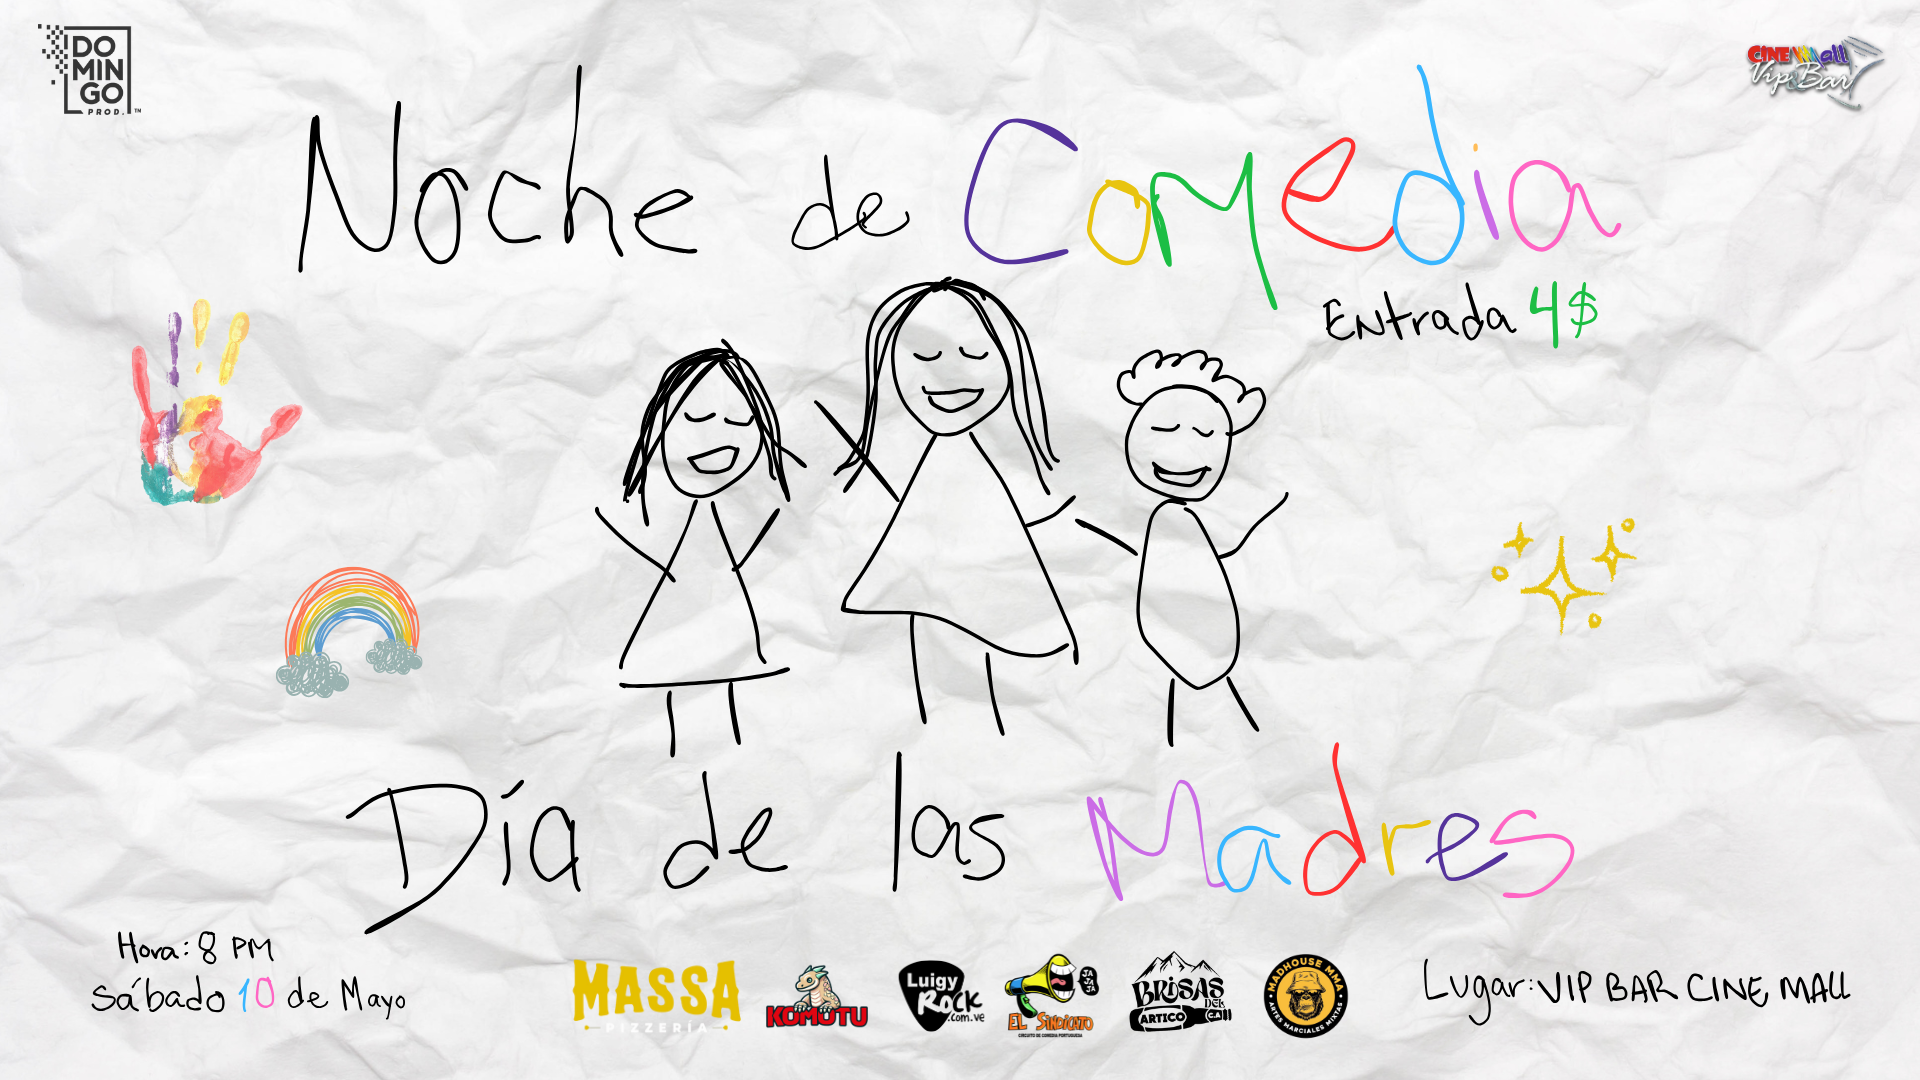 DO
MIN
GO
PROD.™
CINE Mall
Vip Bar
Noche de Comedia
Entrada 4$
Día de las Madres
Hora: 8 PM
Sábado 10 de Mayo
MASSA
PIZZERÍA
KOMOTU
Luigy
Rock
.com.ve
JA
JA
JA
EL SINDICATO
CIRCUITO DE COMEDIA PORTUGUESA
BRISAS
DEL
ARTICO C.A
MADHOUSE MMA
ARTES MARCIALES MIXTAS
Lugar: VIP BAR CINE MALL